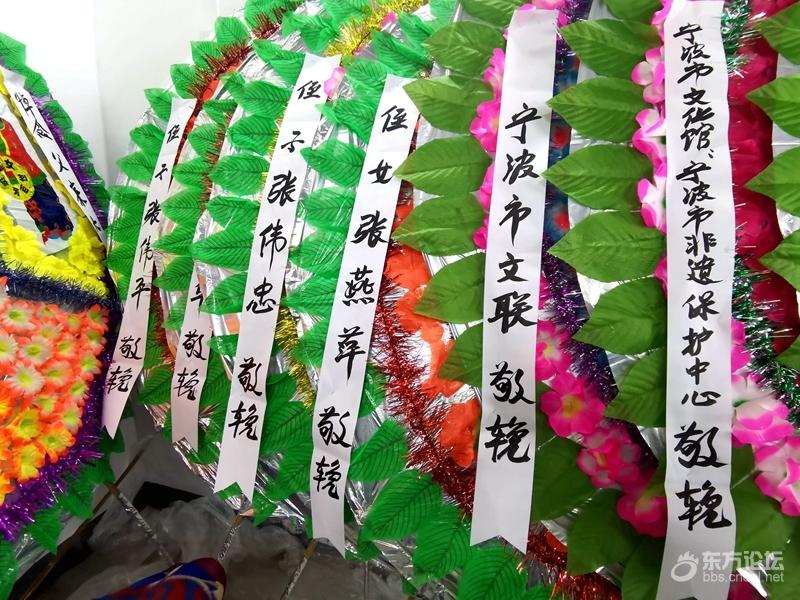 侄子张伟平 敬輓
敬輓
侄子张伟忠 敬輓
侄女张燕萍 敬輓
宁波市文联 敬輓
宁波市文化馆、宁波市非遗保护中心 敬輓
东方论坛
bbs.cnool.net